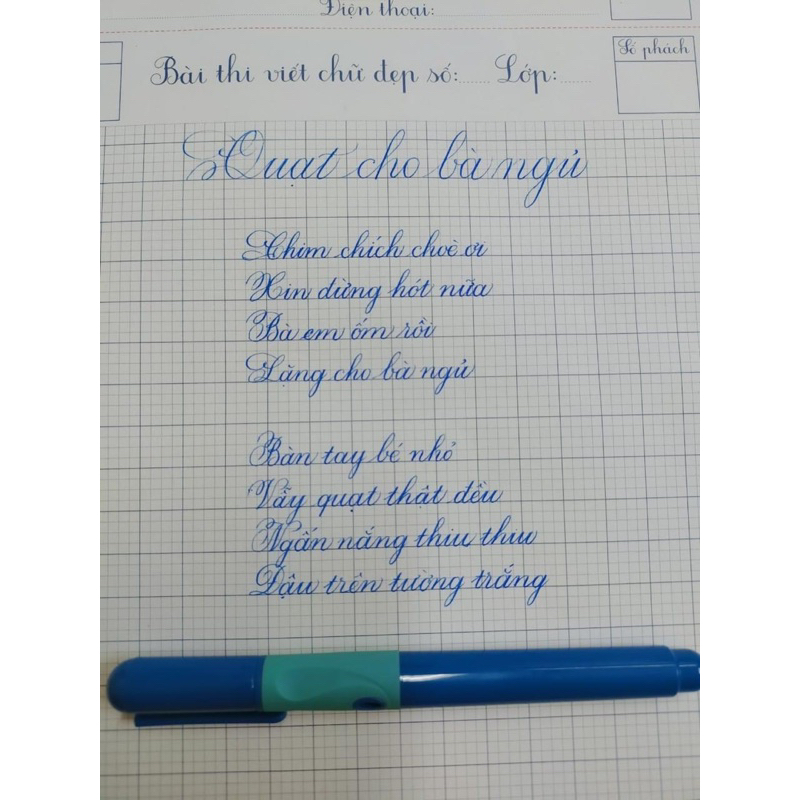 Điện thoại:
Số phách
Bài thi viết chữ đẹp số:...... Lớp:......
Quạt cho bà ngủ
Chim chích choè ơi
Xin đừng hót nữa
Bà em ốm rồi
Lặng cho bà ngủ
Bàn tay bé nhỏ
Vẫy quạt thật đều
Ngấn nắng thiu thiu
Đậu trên tường trắng